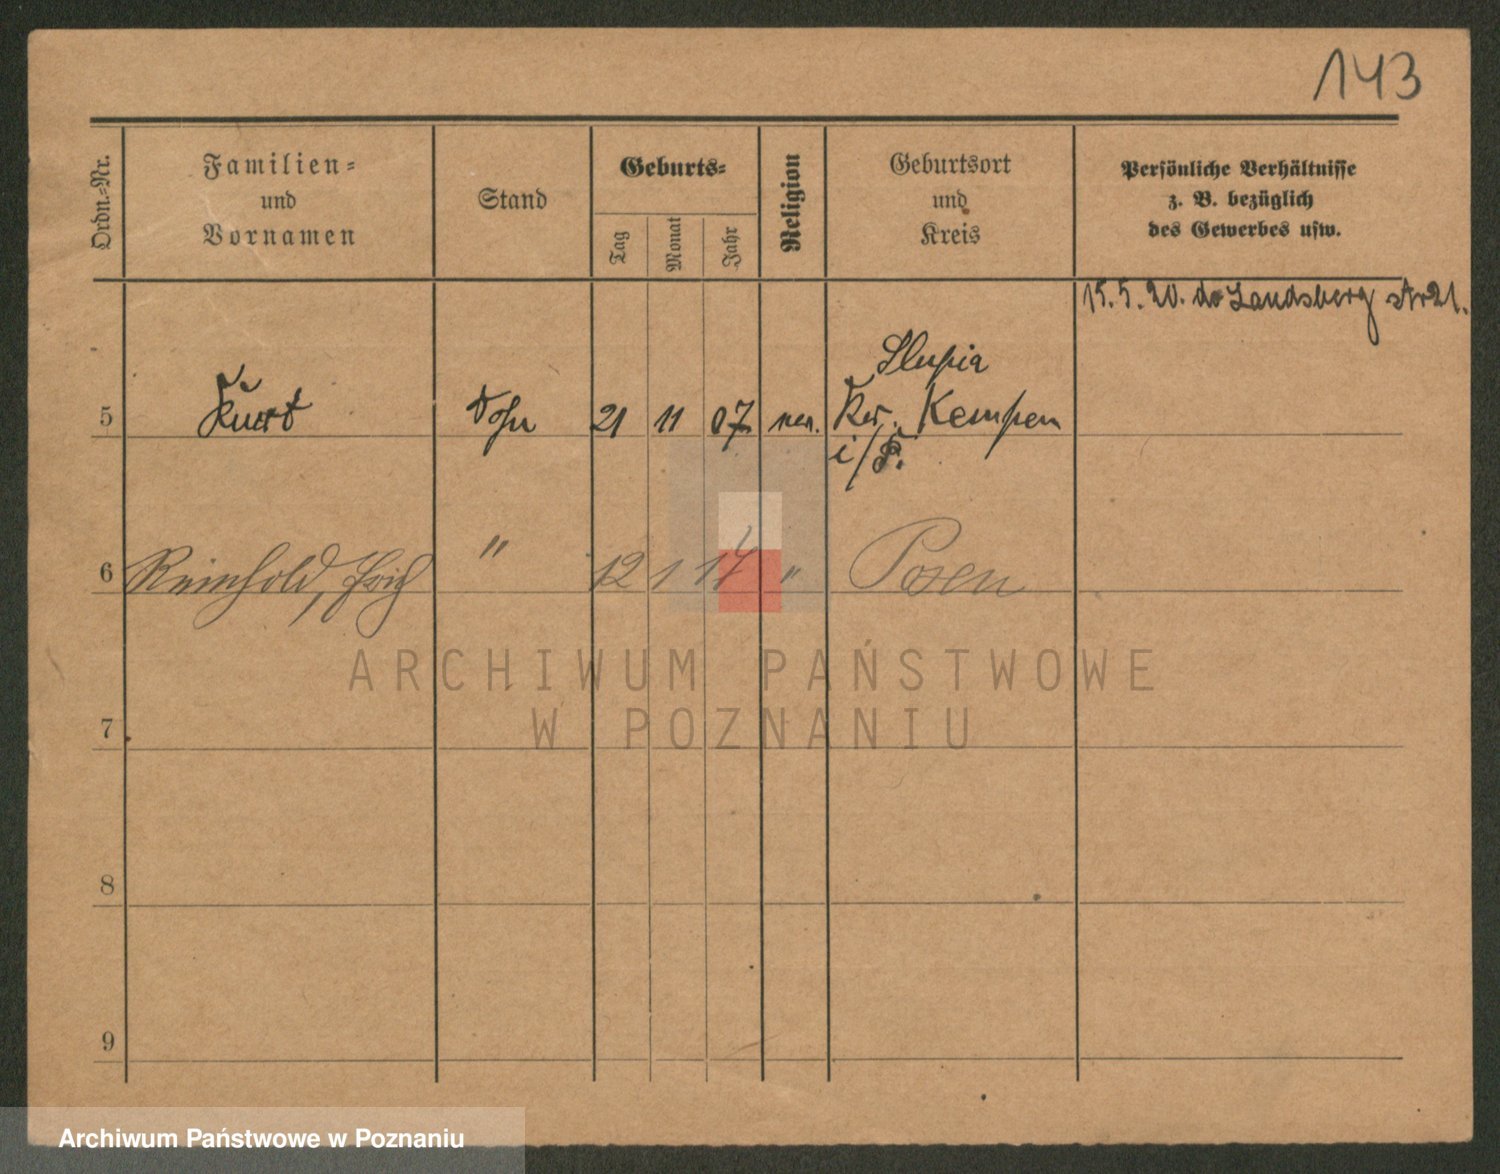 143
Ordn.=Nr.
Familien=
und
Vornamen
Stand
Geburts=
Tag
Monat
Jahr
Religion
Geburtsort
und
Kreis
Persönliche Verhältnisse
z. B. bezüglich
des Gewerbes usw.
15. 5. 20. do Landsberg str 21.
Slupia
5 Kurt Sohn 21 11 07 Kr. Kempen
i/P.
6 Reinhold, Erich " 12 1 17 " Posen
ARCHIWUM PAŃSTWOWE
W POZNANIU
7
8
9
Archiwum Państwowe w Poznaniu